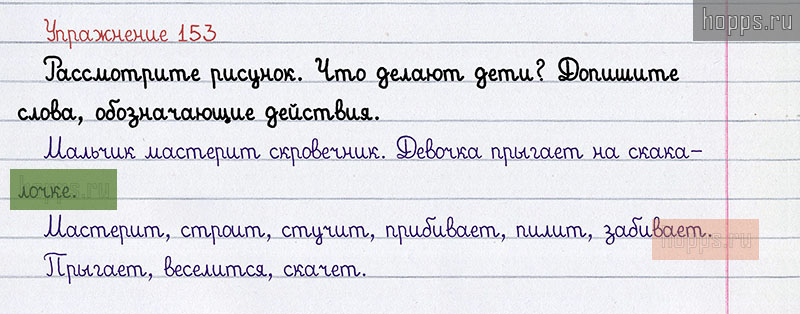 hopps.ru
Упражнение 153
Рассмотрите рисунок. Что делают дети? Допишите
слова, обозначающие действия.
Мальчик мастерит скровечник. Девочка прыгает на скака-
лочке.
hopps.ru
Мастерит, строит, стучит, прибивает, пилит, забивает.
hopps.ru
Прыгает, веселится, скачет.